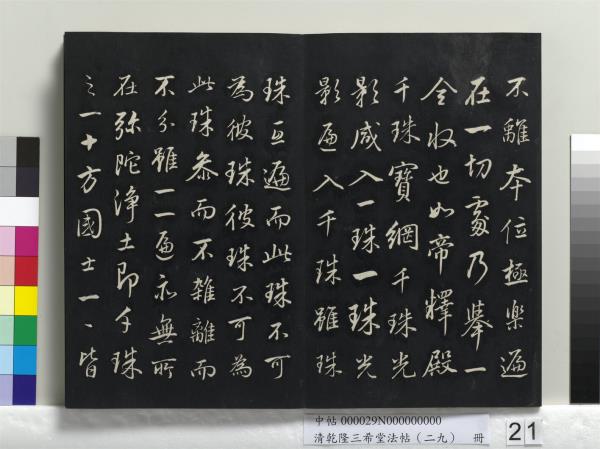 不離本位極樂遍
在一切處乃舉一
全收也如帝釋殿
千珠寶網千珠光
影咸入一珠一珠光
影遍入千珠雖珠
珠互遍而此珠不可
為彼珠彼珠不可為
此珠參而不雜離而
不分雖一一遍亦無所
在弥陀淨土即千珠
之一十方國土一〻皆
中帖 000029N000000000
清乾隆三希堂法帖（二九） 冊
21